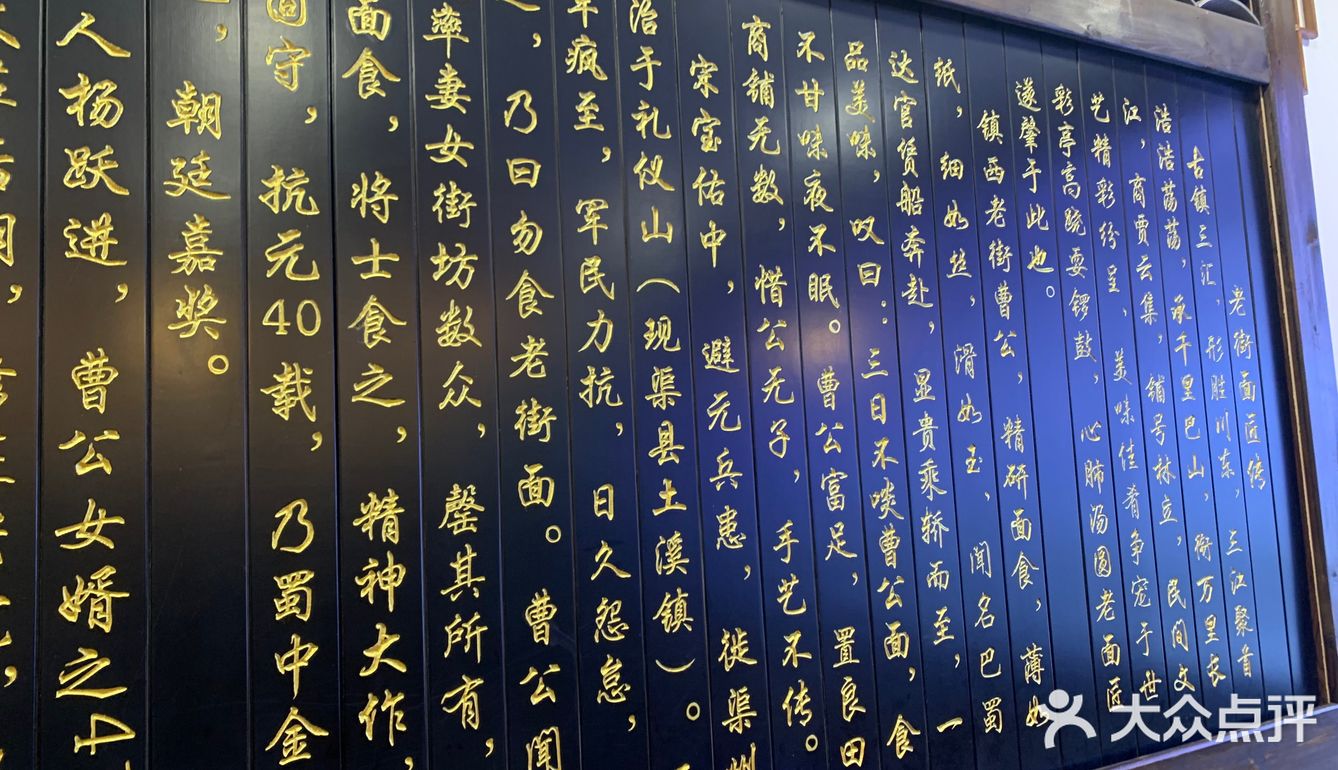 老街面匠传
古镇三汇，形胜川东，三江聚首
浩浩荡荡，承千里巴山，衔万里长
江，商贾云集，铺号林立，民间文
艺精彩纷呈，美味佳肴争宠于世
彩亭高跷耍锣鼓，心肺汤圆老面匠
遂肇于此也。
镇西老街曹公，精研面食，薄如
纸，细如丝，滑如玉，闻名巴蜀
达官赁船奔赴，显贵乘轿而至，一
品美味，叹曰：三日不啖曹公面，食
不甘味夜不眠。曹公富足，置良田
商铺无数，惜公无子，手艺不传。
宋宝佑中，避元兵患，徙渠州
治于礼仪山（现渠县土溪镇）。
年疯至，军民力抗，日久怨怠，
，乃曰勿食老街面。曹公闻
率妻女街坊数众，罄其所有，
面食，将士食之，精神大作，
固守，抗元40载，乃蜀中金
，朝廷嘉奖。
人杨跃进，曹公女婿之